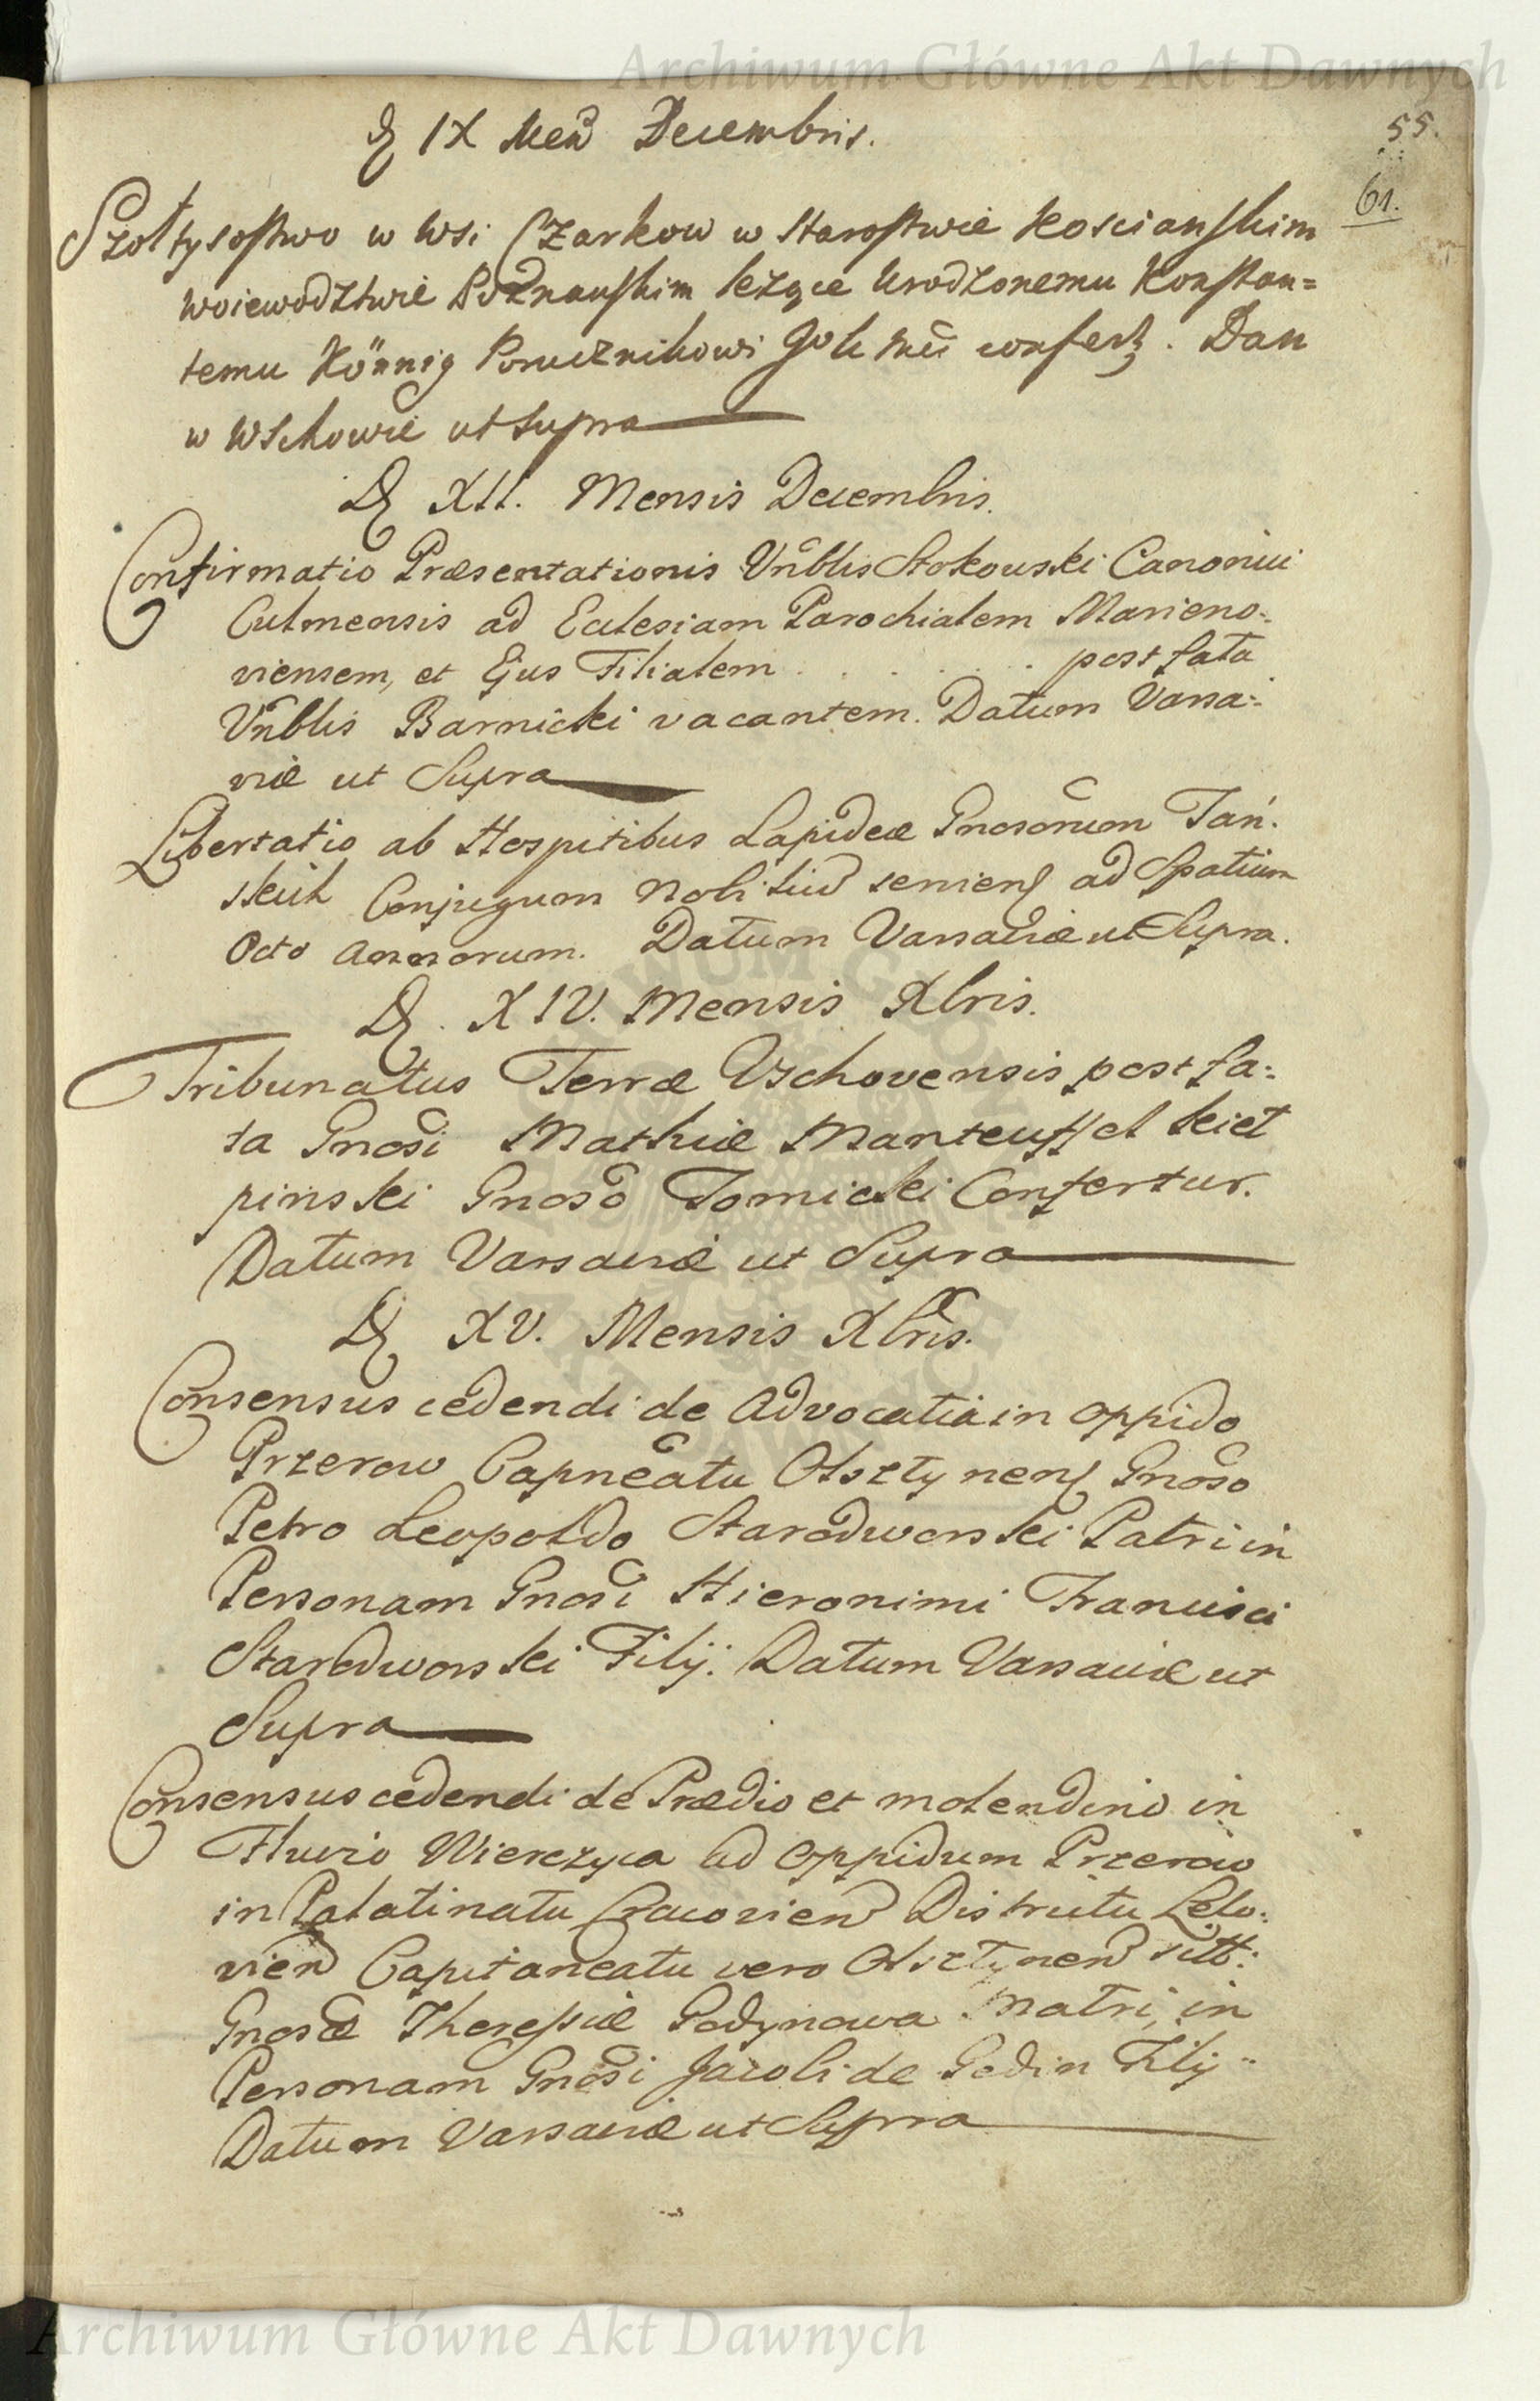 Archiwum Główne Akt Dawnych
D IX Men Decembris.
55.
61.
Szołtysostwo w wsi Czarkow w Starostwie Koscianskim
Woiewodztwie Poznanskim leżące Urodzonemu Konstan=
temu Könnig Porucznikowi J K Mći confertz. Dan
w Wschowie ut supra
D XII. Mensis Decembris.
Confirmatio Præsentationis Vnblis Stokowski Canonici
Culmensis ad Ecclesiam Parochialem Marieno-
viensem, et Ejus Filialem . . . . . post fata
Vnblis Barnicki vacantem. Datum Varsa-
viæ ut Supra
Libertatio ab Hospitibus Lapideæ Gnosorum Jań.
skich Conjugum ad Spatium
Octo annorum. Datum Varsaviæ ut Supra.
D. XIV. Mensis Xbris.
Tribunatus Terræ Vschovensis post fa-
ta Gnosi Mathiæ Manteuffel Kieł
pinski Gnoso Tomicki Confertur.
Datum Varsaviæ ut Supra
D XV. Mensis Xbris.
Consensus cedendi de Advocatia in oppido
Przerow Capneatu Olsztynens Gnoso
Petro Leopoldo Starodworski Patri in
Personam Gnosi Hieronimi Francisci
Starodworski Filij. Datum Varsaviæ ut
Supra
Consensus cedendi de Prædio et molendino in
Fluvio Wierczyca ad oppidum Przerow
in Palatinatu Cracovien Districtu Lelo-
vien Capitaneatu vero Olsztynen sitt:
Gnosæ Theressiæ Godynowa Matri, in
Personam Gnosi Jacobi de Godin Filij
Datum Varsaviæ ut Supra
Archiwum Główne Akt Dawnych